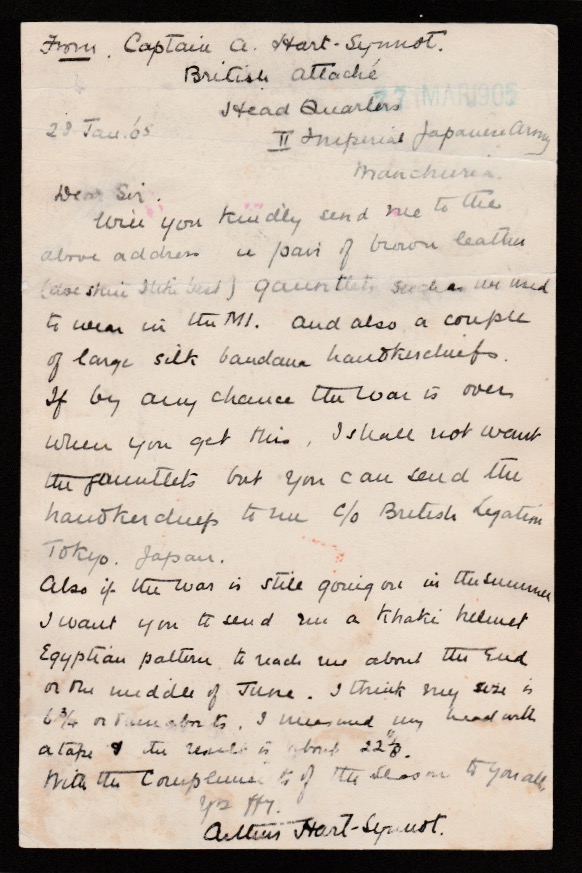 From. Captain A. Hart-Synnot.
British Attaché
27 MAR 1905
Head Quarters
28 Jan '05
II Imperial Japanese Army
Manchuria.
Dear Sir.
Will you kindly send me to the
above address a pair of brown leather
(doe skin I like best) gauntlets such as we used
to wear in the MI. and also a couple
of large silk bandana handkerchiefs.
If by any chance the war is over
when you get this, I shall not want
the gauntlets but you can send the
handkerchiefs to me c/o British Legation
Tokyo. Japan.
Also if the war is still going on in the summer
I want you to send me a Khaki helmet
Egyptian pattern to reach me about the End
or the middle of June. I think my size is
6 3/4 or thereabouts, I measured my head with
a tape & the result is about 22"
With the Compliments of the Season to you all,
Yrs
Arthur Hart-Synnot.